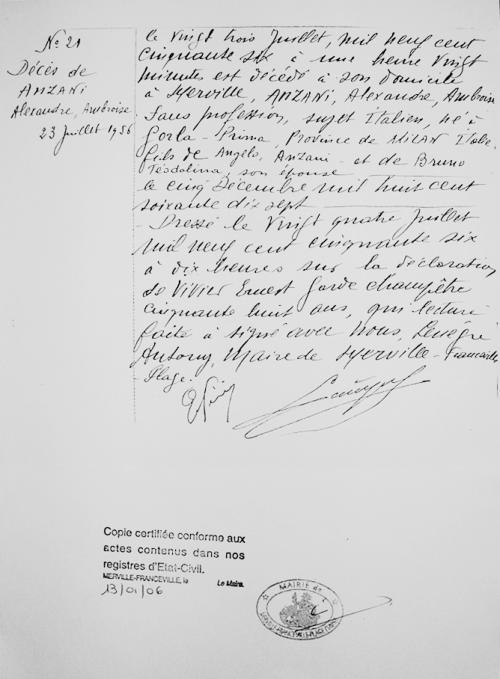 N° 21
Décès de
ANZANI
Alexandre, Ambroise
23 Juillet 1956
le vingt trois Juillet, mil neuf cent
cinquante six à une heure vingt
minutes est décédé à son domicile
à Merville, ANZANI, Alexandre, Ambroise
sans profession, sujet Italien, né à
Gorla-Prima, Province de MILAN Italie,
fils de Angelo, Anzani et de Bruno
Téodolina, son épouse
le cinq Décembre mil huit cent
soixante dix sept
- Dressé le vingt quatre Juillet
mil neuf cent cinquante six
à dix heures sur la déclaration
de Vivier Ernest Garde champêtre
cinquante huit ans, qui lecture
faite a signé avec Nous,
Antony, Maire de Merville-Franceville
-Plage.
Copie certifiée conforme aux
actes contenus dans nos
registres d'Etat-Civil.
MERVILLE-FRANCEVILLE, le
Le Maire,
13/01/06
MAIRIE de